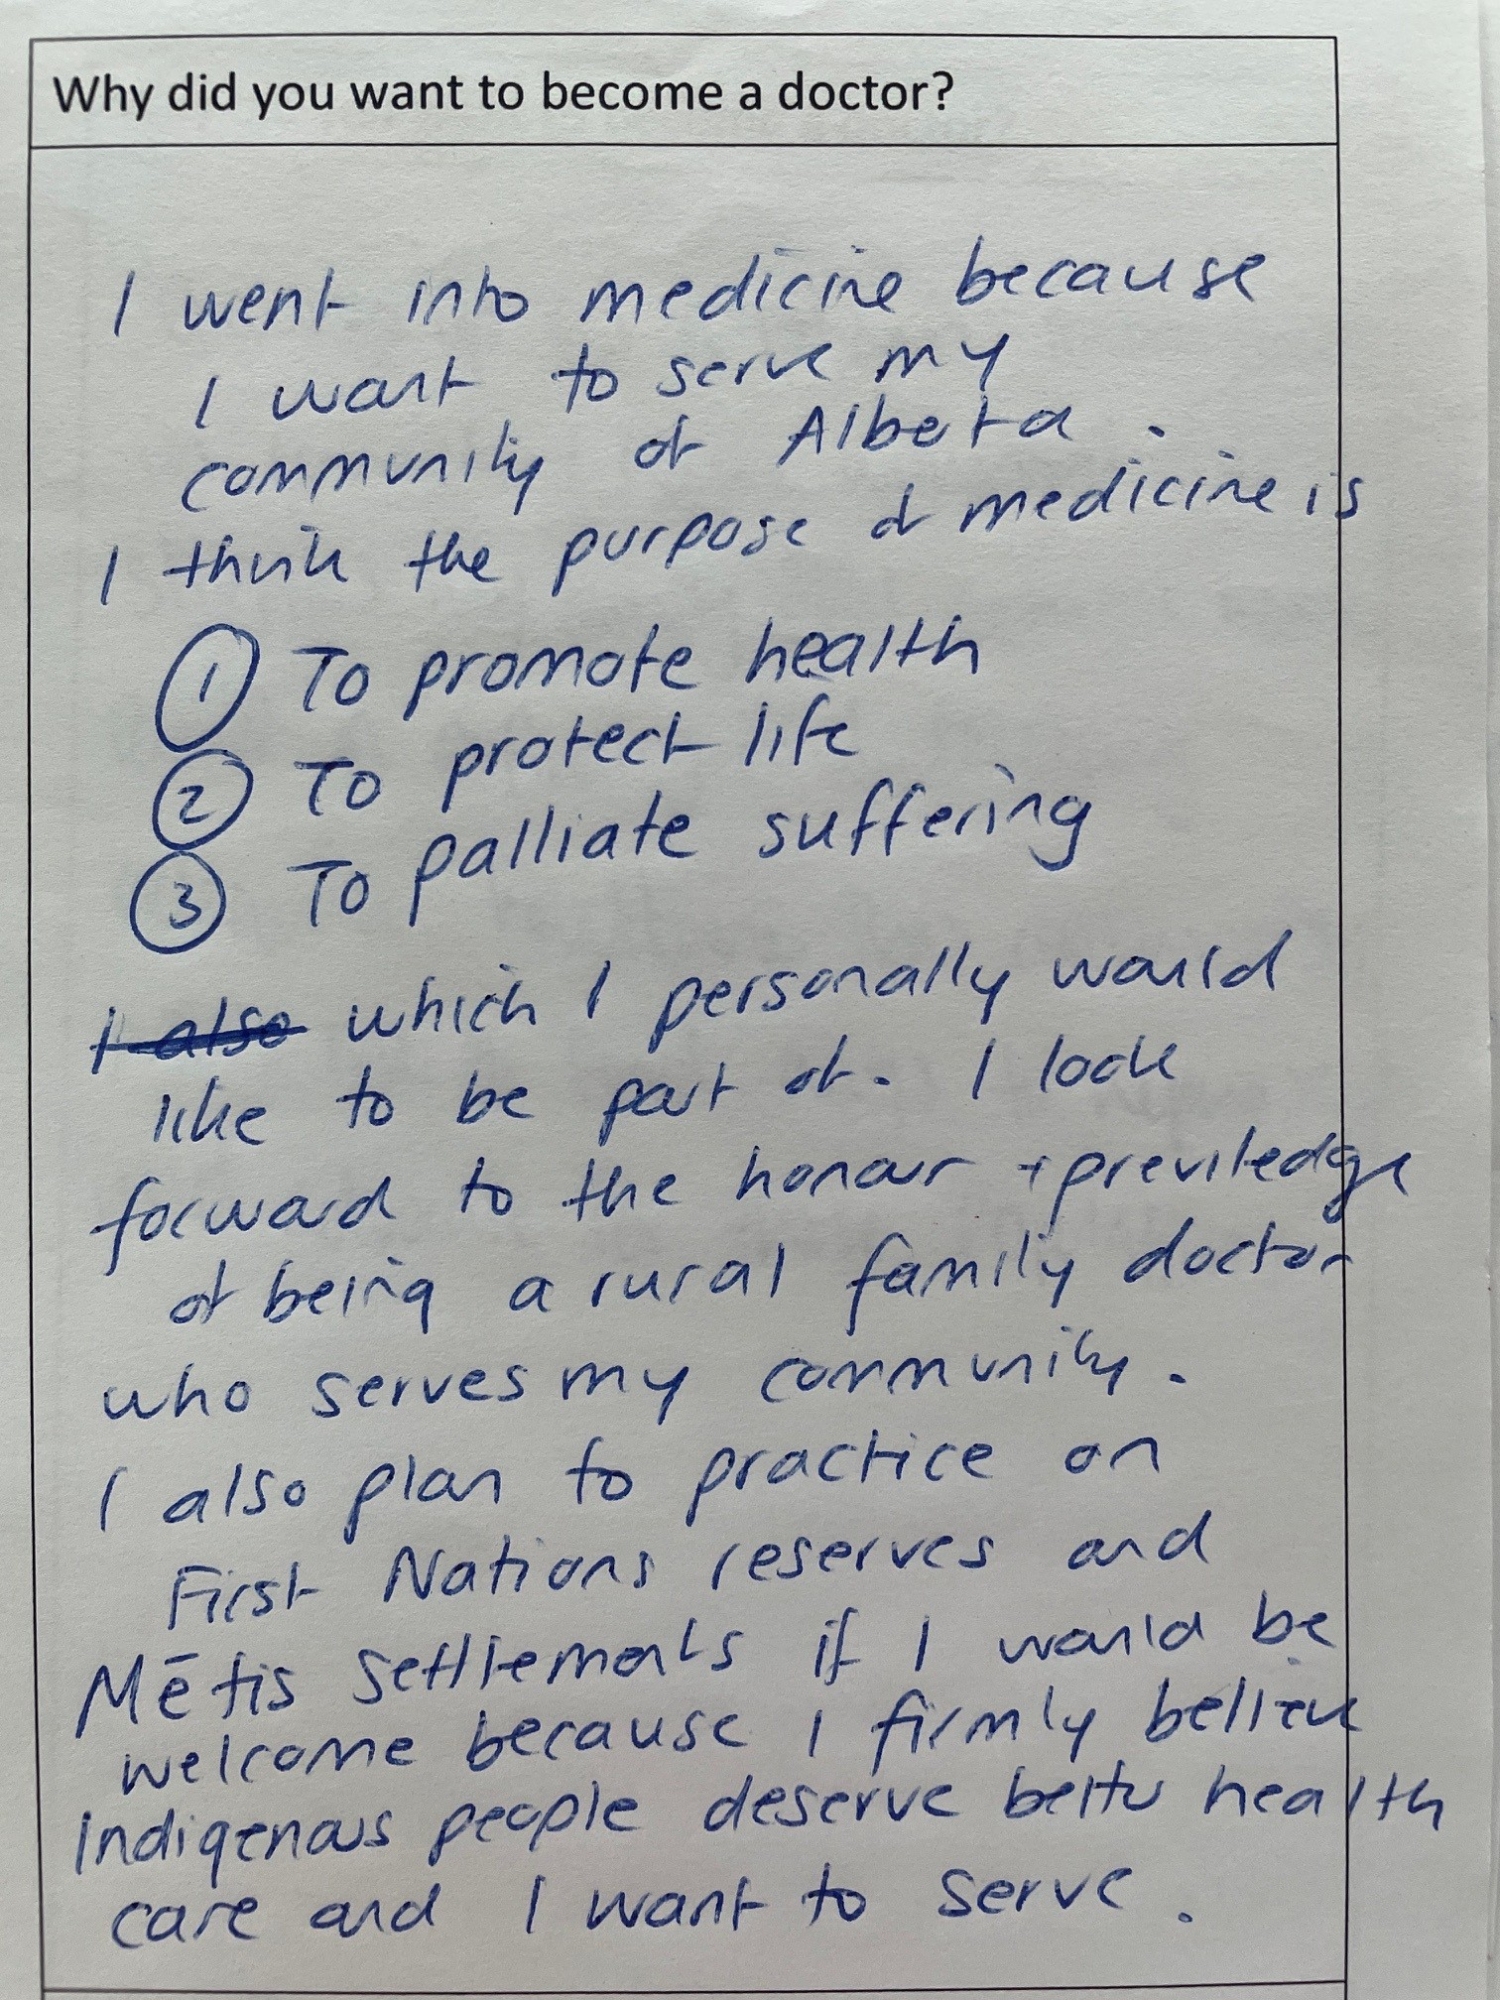 Why did you want to become a doctor?
I went into medicine because
I want to serve my
community of Alberta.
I think the purpose of medicine is
① To promote health
② To protect life
③ To palliate suffering
I also which I personally would
like to be part of. I look
forward to the honour + previledge
of being a rural family doctor
who serves my community.
I also plan to practice on
First Nations reserves and
Mētis settlements if I would be
welcome because I firmly believe
Indigenous people deserve better health
care and I want to serve.